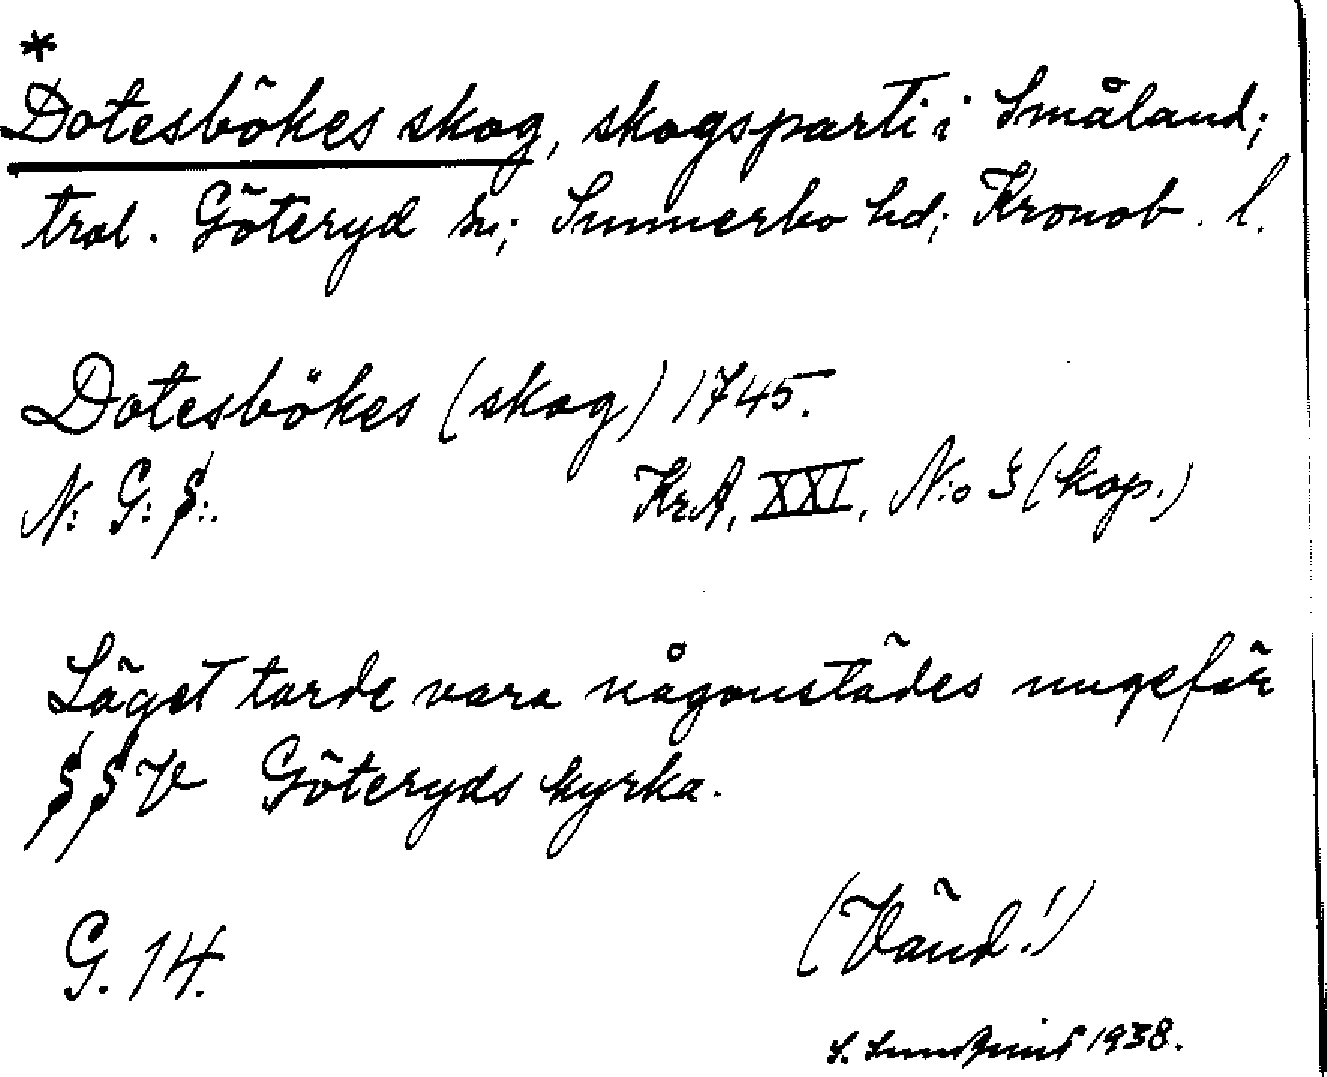 *
Dotesbökes skog, skogsparti i Småland;
trol. Göteryd sn; Sunnerbo hd; Kronob. l.
Dotesbökes (skog) 1745.
N: G: S:.
KrA, XXI, N:o 3 (kop.)
Läget torde vara någonstädes ungefär
SSV Göteryds kyrka.
G. 14.
(Vänd!)
S. 1938.